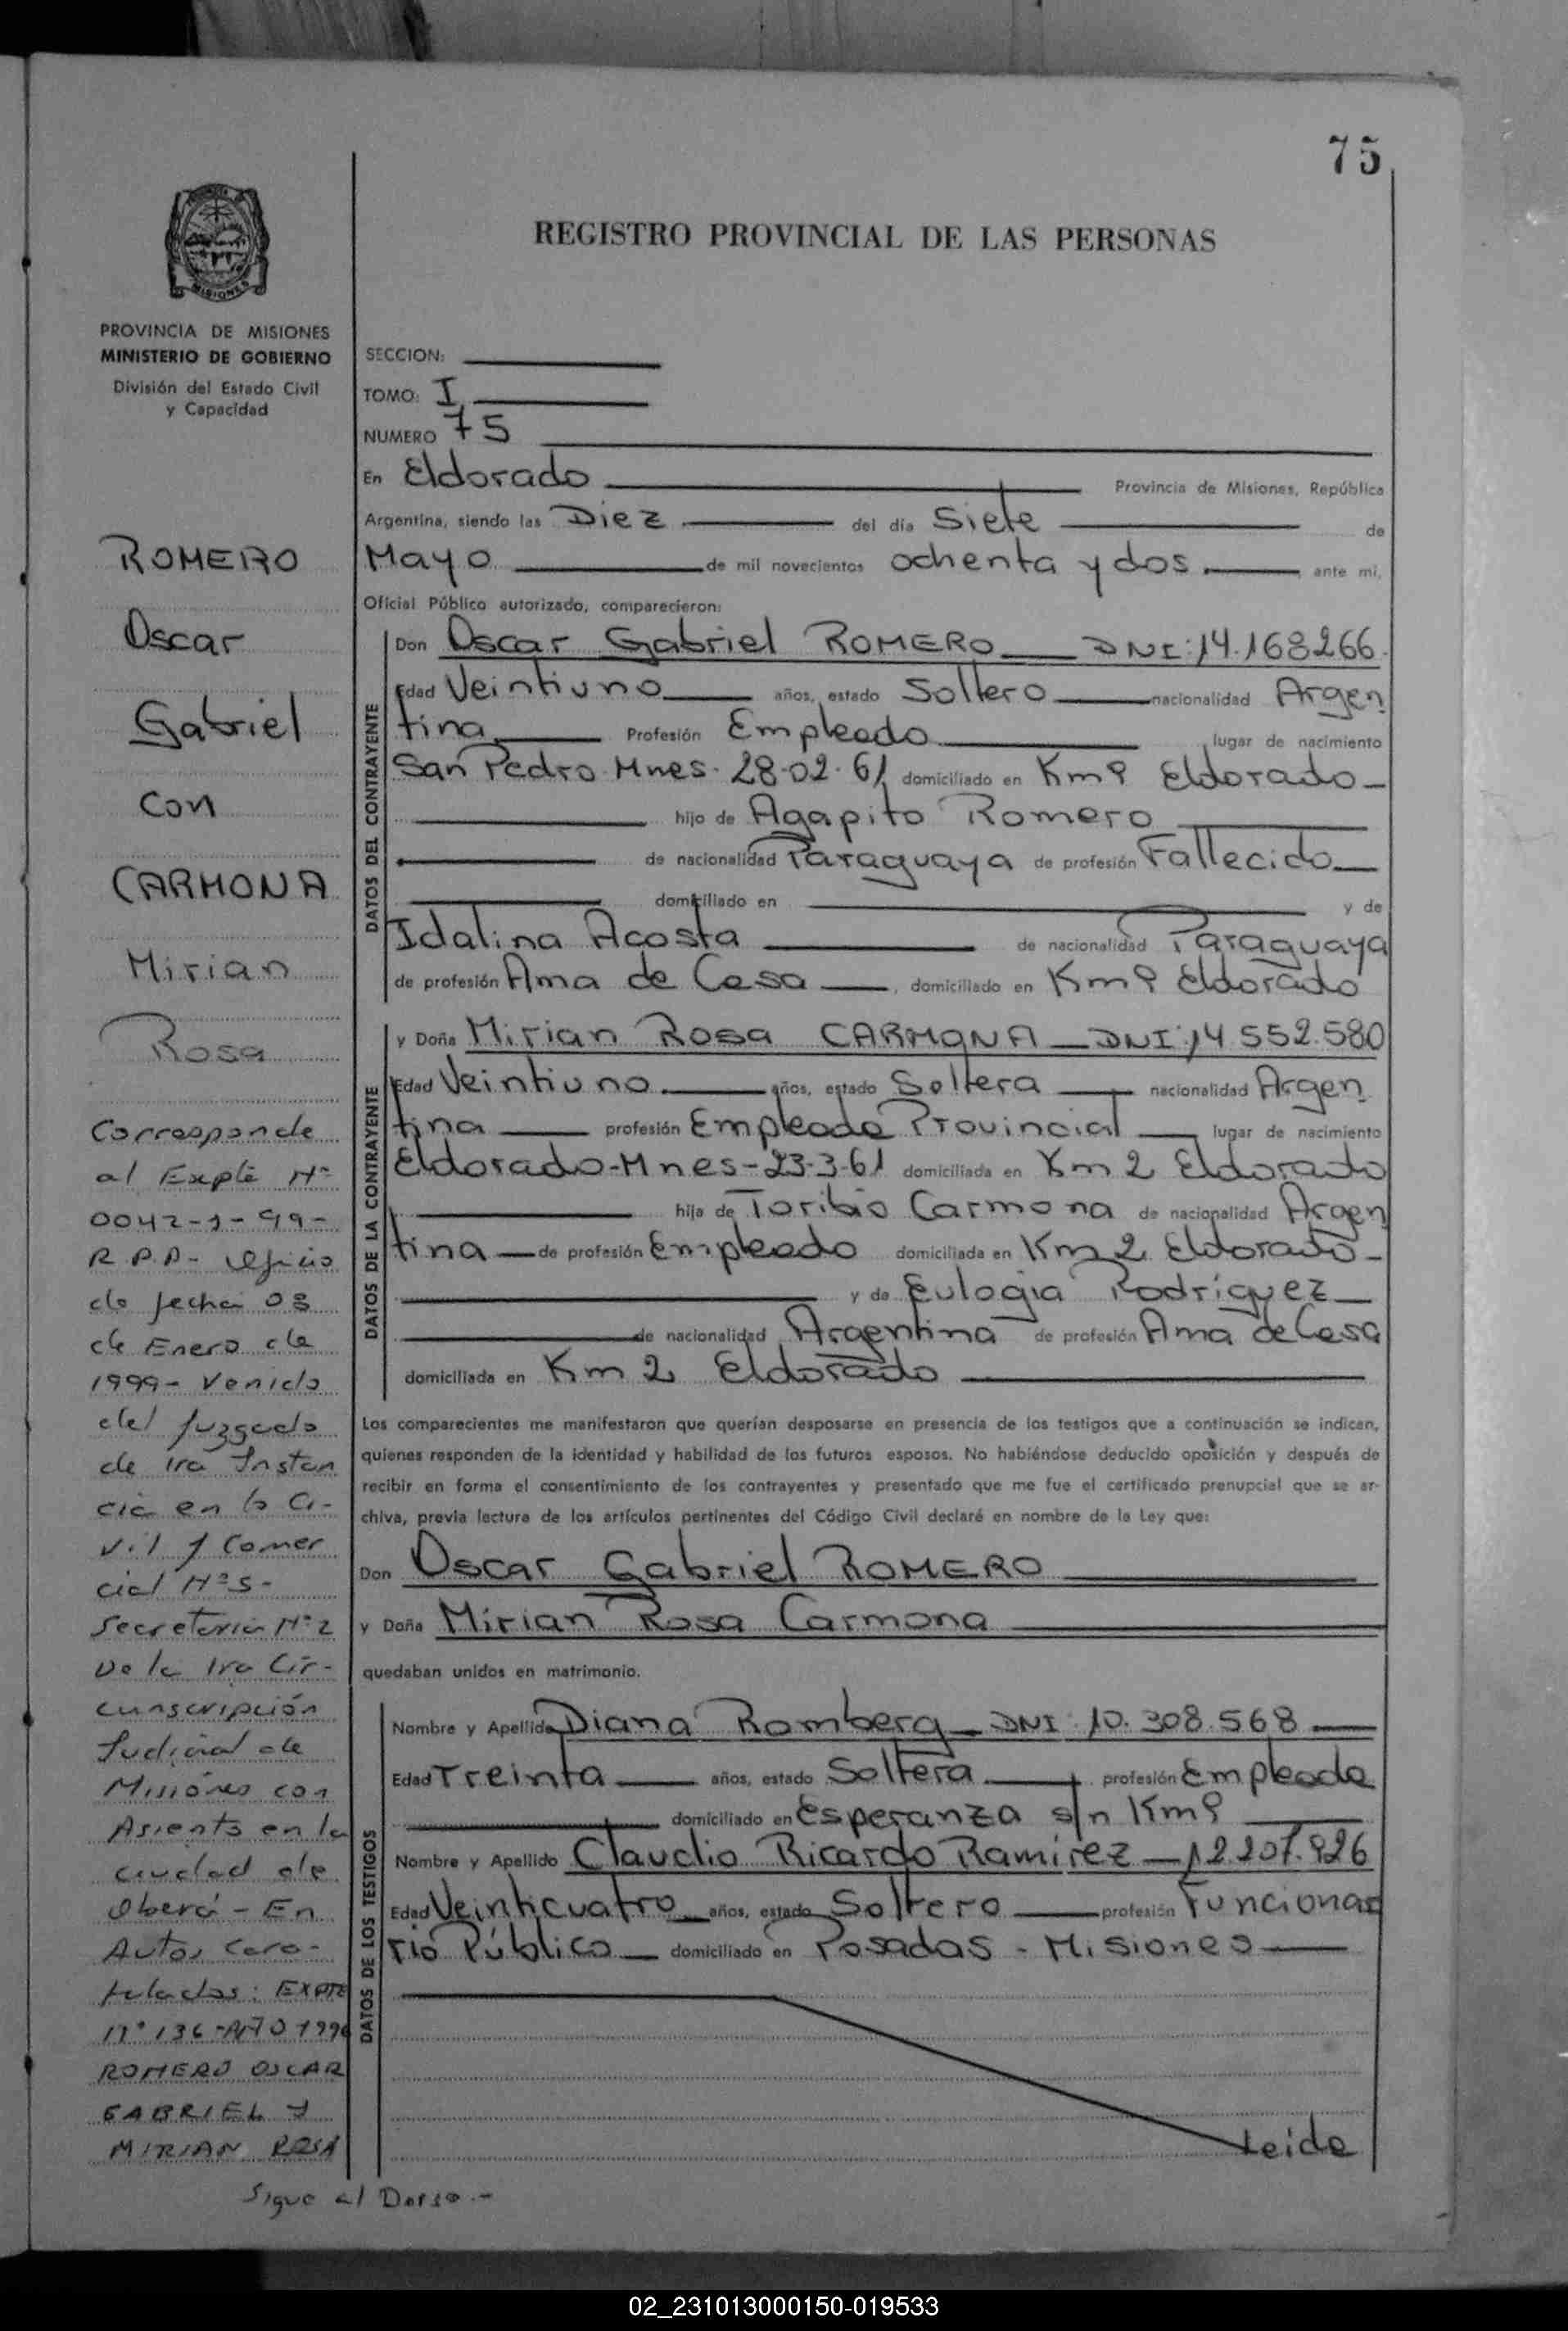 75
REGISTRO PROVINCIAL DE LAS PERSONAS
MISIONES
PROVINCIA DE MISIONES
MINISTERIO DE GOBIERNO
División del Estado Civil
y Capacidad
ROMERO
Oscar
Gabriel
con
CARMONA
Mirian
Rosa
Corresponde
al Expte Nº
0042-1-99-
R.P.P- Oficio
de fecha 08
de Enero de
1999- Venido
del Juzgado
de 1ra Instan
cia en lo Ci-
vil y Comer
cial Nº5-
Secretaria Nº2
De la 1ra Cir-
cunscripción
Judicial de
Misiones con
Asiento en la
ciudad de
Oberá - En
Autos Cara-
tulados: EXPTE
Nº 136-AÑO 1996
ROMERO OSCAR
GABRIEL Y
MIRIAN ROSA
Sigue al Dorso.-
SECCION:
TOMO: I
NUMERO 75
En Eldorado Provincia de Misiones, República
Argentina, siendo las Diez del día Siete de
Mayo de mil novecientos ochenta y dos, ante mi,
Oficial Público autorizado, comparecieron:
DATOS DEL CONTRAYENTE
Don Oscar Gabriel ROMERO DNI:14.168266.
Edad Veintiuno años, estado Soltero nacionalidad Argen
tina Profesión Empleado lugar de nacimiento
San Pedro Mnes. 28-02-61, domiciliado en Km9 Eldorado
hijo de Agapito Romero
de nacionalidad Paraguaya de profesión Fallecido
domiciliado en y de
Idalina Acosta de nacionalidad Paraguaya
de profesión Ama de Casa, domiciliado en Km9 Eldorado
DATOS DE LA CONTRAYENTE
y Doña Mirian Rosa CARMONA DNI:14.552.580
Edad Veintiuno años, estado Soltera nacionalidad Argen
tina profesión Empleada Provincial lugar de nacimiento
Eldorado-Mnes-23-3-61 domiciliada en Km 2 Eldorado
hija de Toribio Carmona de nacionalidad Argen
tina de profesión Empleado domiciliada en Km2 Eldorado
y de Eulogia Rodríguez
de nacionalidad Argentina de profesión Ama de Casa
domiciliada en Km 2 Eldorado
Los comparecientes me manifestaron que querían desposarse en presencia de los testigos que a continuación se indican,
quienes responden de la identidad y habilidad de los futuros esposos. No habiéndose deducido oposición y después de
recibir en forma el consentimiento de los contrayentes y presentado que me fue el certificado prenupcial que se ar-
chiva, previa lectura de los artículos pertinentes del Código Civil declaré en nombre de la Ley que:
Don Oscar Gabriel ROMERO
y Doña Mirian Rosa Carmona
quedaban unidos en matrimonio.
DATOS DE LOS TESTIGOS
Nombre y Apellido Diana Romberg DNI 10.308.568
Edad Treinta años, estado Soltera profesión Empleada
domiciliado en Esperanza s/n Km9
Nombre y Apellido Claudio Ricardo Ramirez 12.207.926
Edad Veinticuatro años, estado Soltero profesión Funciona
rio Público domiciliado en Posadas - Misiones
Leida
02_231013000150-019533